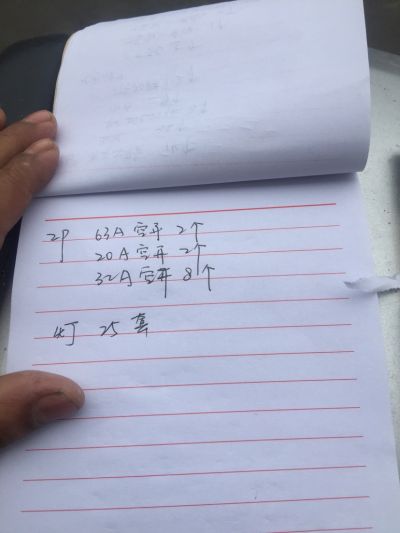 2P 63A 空开 2个
20A 空开 2个
32A 空开 8个
灯 25 套